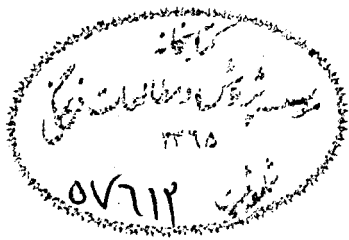 کتابخانه
موسسه پژوهش و مطالعات فرهنگی
۱۳۶۵
شماره ثبت
۵۷۶۱۲